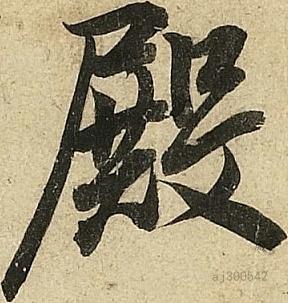 殿
aj300542